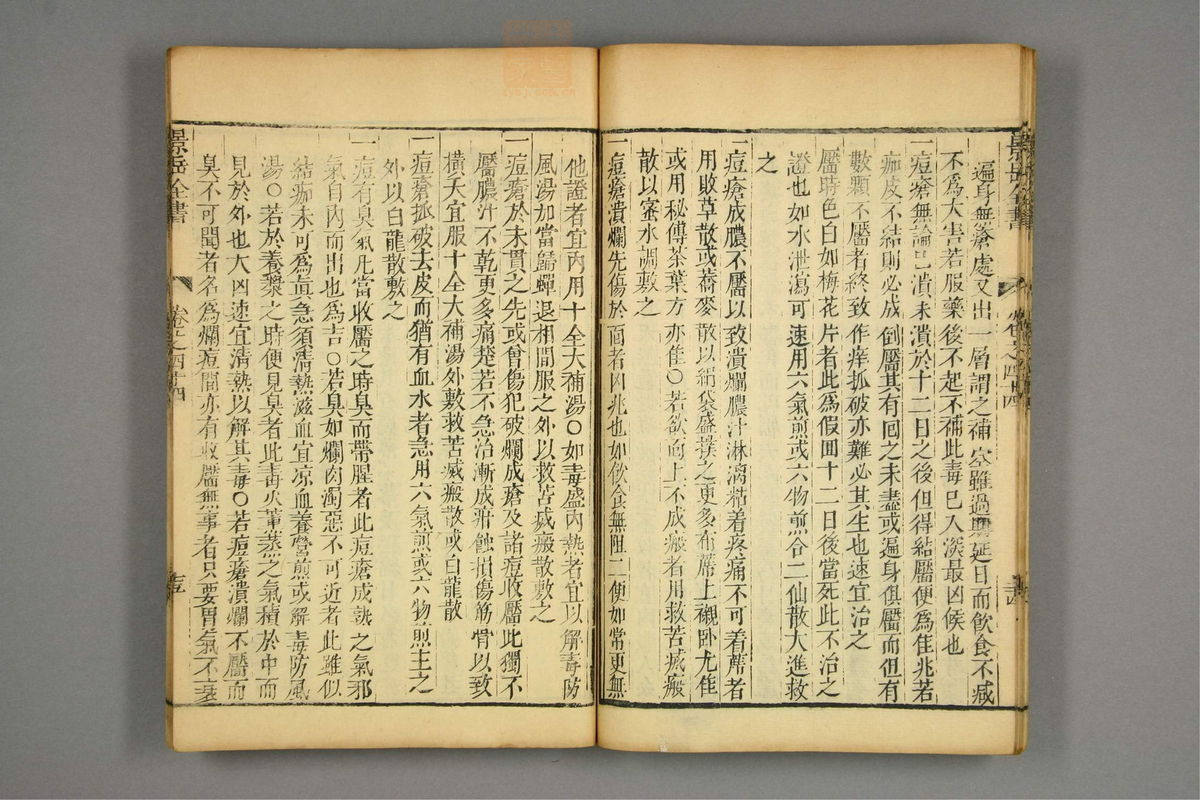 景岳全書
卷之四十四
遍身無瘡處又出一層謂之補空雖過期延日而飲食不減
不爲大害若服藥後不起不補此毒已入深最凶候也
一痘瘡無論已潰未潰於十二日之後但得結靨便爲佳兆若
痂皮不結則必成倒靨其有回之未盡或遍身俱靨而但有
數顆不靨者終致作痒抓破亦難必其生也速宜治之
靨時色白如梅花片者此爲假回十二日後當死此不治之
證也如水泄瀉可速用六氣煎或六物煎合二仙散大進救
之
一痘瘡成膿不靨以致潰爛膿汁淋漓粘着疼痛不可着蓆者
用敗草散或蕎麥散以絹袋盛撲之更多布蓆上襯卧尤佳
或用秘傳茶葉方亦佳○若欲面上不成瘢者用救苦滅瘢
散以蜜水調敷之
一痘瘡潰爛先傷於面者凶兆也如飲食無阻二便如常更無
他證者宜內用十全大補湯○如毒盛內熱者宜以解毒防
風湯加當歸蟬退相間服之外以救苦滅瘢散敷之
一痘瘡於未貫之先或曾傷犯破爛成瘡及諸痘收靨此獨不
靨膿汁不乾更多痛楚若不急治漸成疳蝕損傷筋骨以致
橫夭宜服十全大補湯外敷救苦滅瘢散或白龍散
一痘瘡抓破去皮而猶有血水者急用六氣煎或六物煎主之
外以白龍散敷之
一痘有臭氣凡當收靨之時臭而帶腥者此痘瘡成熟之氣邪
氣自內而出也爲吉○若臭如爛肉濁惡不可近者此雖似
結痂未可爲眞急須淸熱滋血宜凉血養營煎或解毒防風
湯○若於養漿之時便見臭者此毒火薰蒸之氣積於中而
見於外也大凶速宜淸熱以解其毒○若痘瘡潰爛不靨而
臭不可聞者名爲爛痘間亦有收靨無事者只要胃氣不衰
景岳全書
卷之四十四